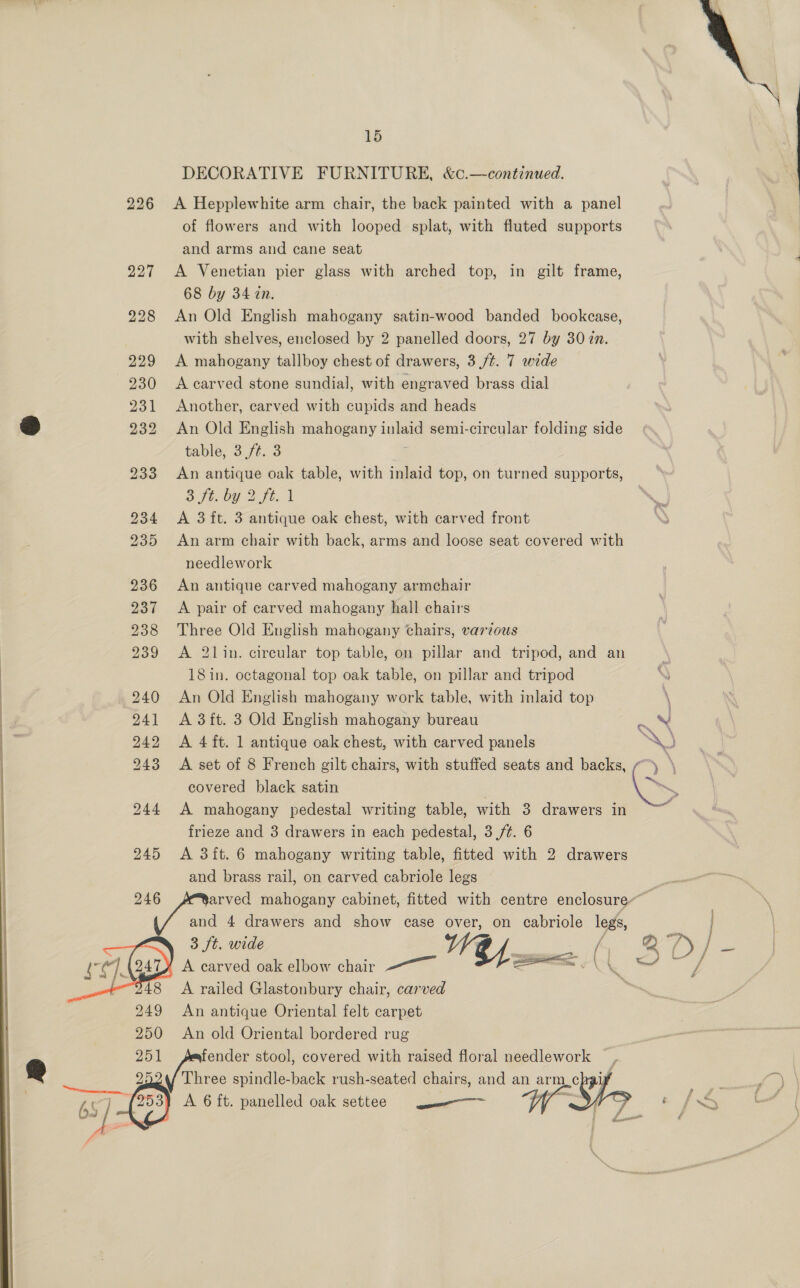 15
DECORATIVE FURNITURE, &c.—continued.
226 A Hepplewhite arm chair, the back painted with a panel
of flowers and with looped splat, with fluted supports
and arms and cane seat
227 A Venetian pier glass with arched top, in gilt frame,
68 by 34 in.
228 An Old English mahogany satin-wood banded bookcase,
with shelves, enclosed by 2 panelled doors, 27 by 30 in.
229 A mahogany tallboy chest of drawers, 3 ft. 7 wide
230 A carved stone sundial, with engraved brass dial
231 Another, carved with cupids and heads
232 An Old English mahogany inlaid semi-circular folding side
table, 3 ft. 3
233 An antique oak table, with inlaid top, on turned supports,
3 ft. by 2 ft. 1
234 A 3 ft. 3 antique oak chest, with carved front
235 An arm chair with back, arms and loose seat covered with
needlework
236 An antique carved mahogany armchair
237 A pair of carved mahogany hall chairs
238 Three Old English mahogany chairs, various
239 A 21 in. circular top table, on pillar and tripod, and an
18 in. octagonal top oak table, on pillar and tripod
240 An Old English mahogany work table, with inlaid top
241 A 3 ft. 3 Old English mahogany bureau
242 A 4 ft. 1 antique oak chest, with carved panels
243 A set of 8 French gilt chairs, with stuffed seats and backs,
covered black satin
244 A mahogany pedestal writing table, with 3 drawers in
frieze and 3 drawers in each pedestal, 3 ft. 6
245 A 3 ft. 6 mahogany writing table, fitted with 2 drawers
and brass rail, on carved cabriole legs
246 carved mahogany cabinet, fitted with centre enclosure
and 4 drawers and show case over, on cabriole legs,
3 ft. wide
247 A carved oak elbow chair
248 A railed Glastonbury chair, carved
249 An antique Oriental felt carpet
250 An old Oriental bordered rug
251 fender stool, covered with raised floral needlework
252 Three spindle-back rush-seated chairs, and an arm chair
65/- 253 A 6 ft. panelled oak settee